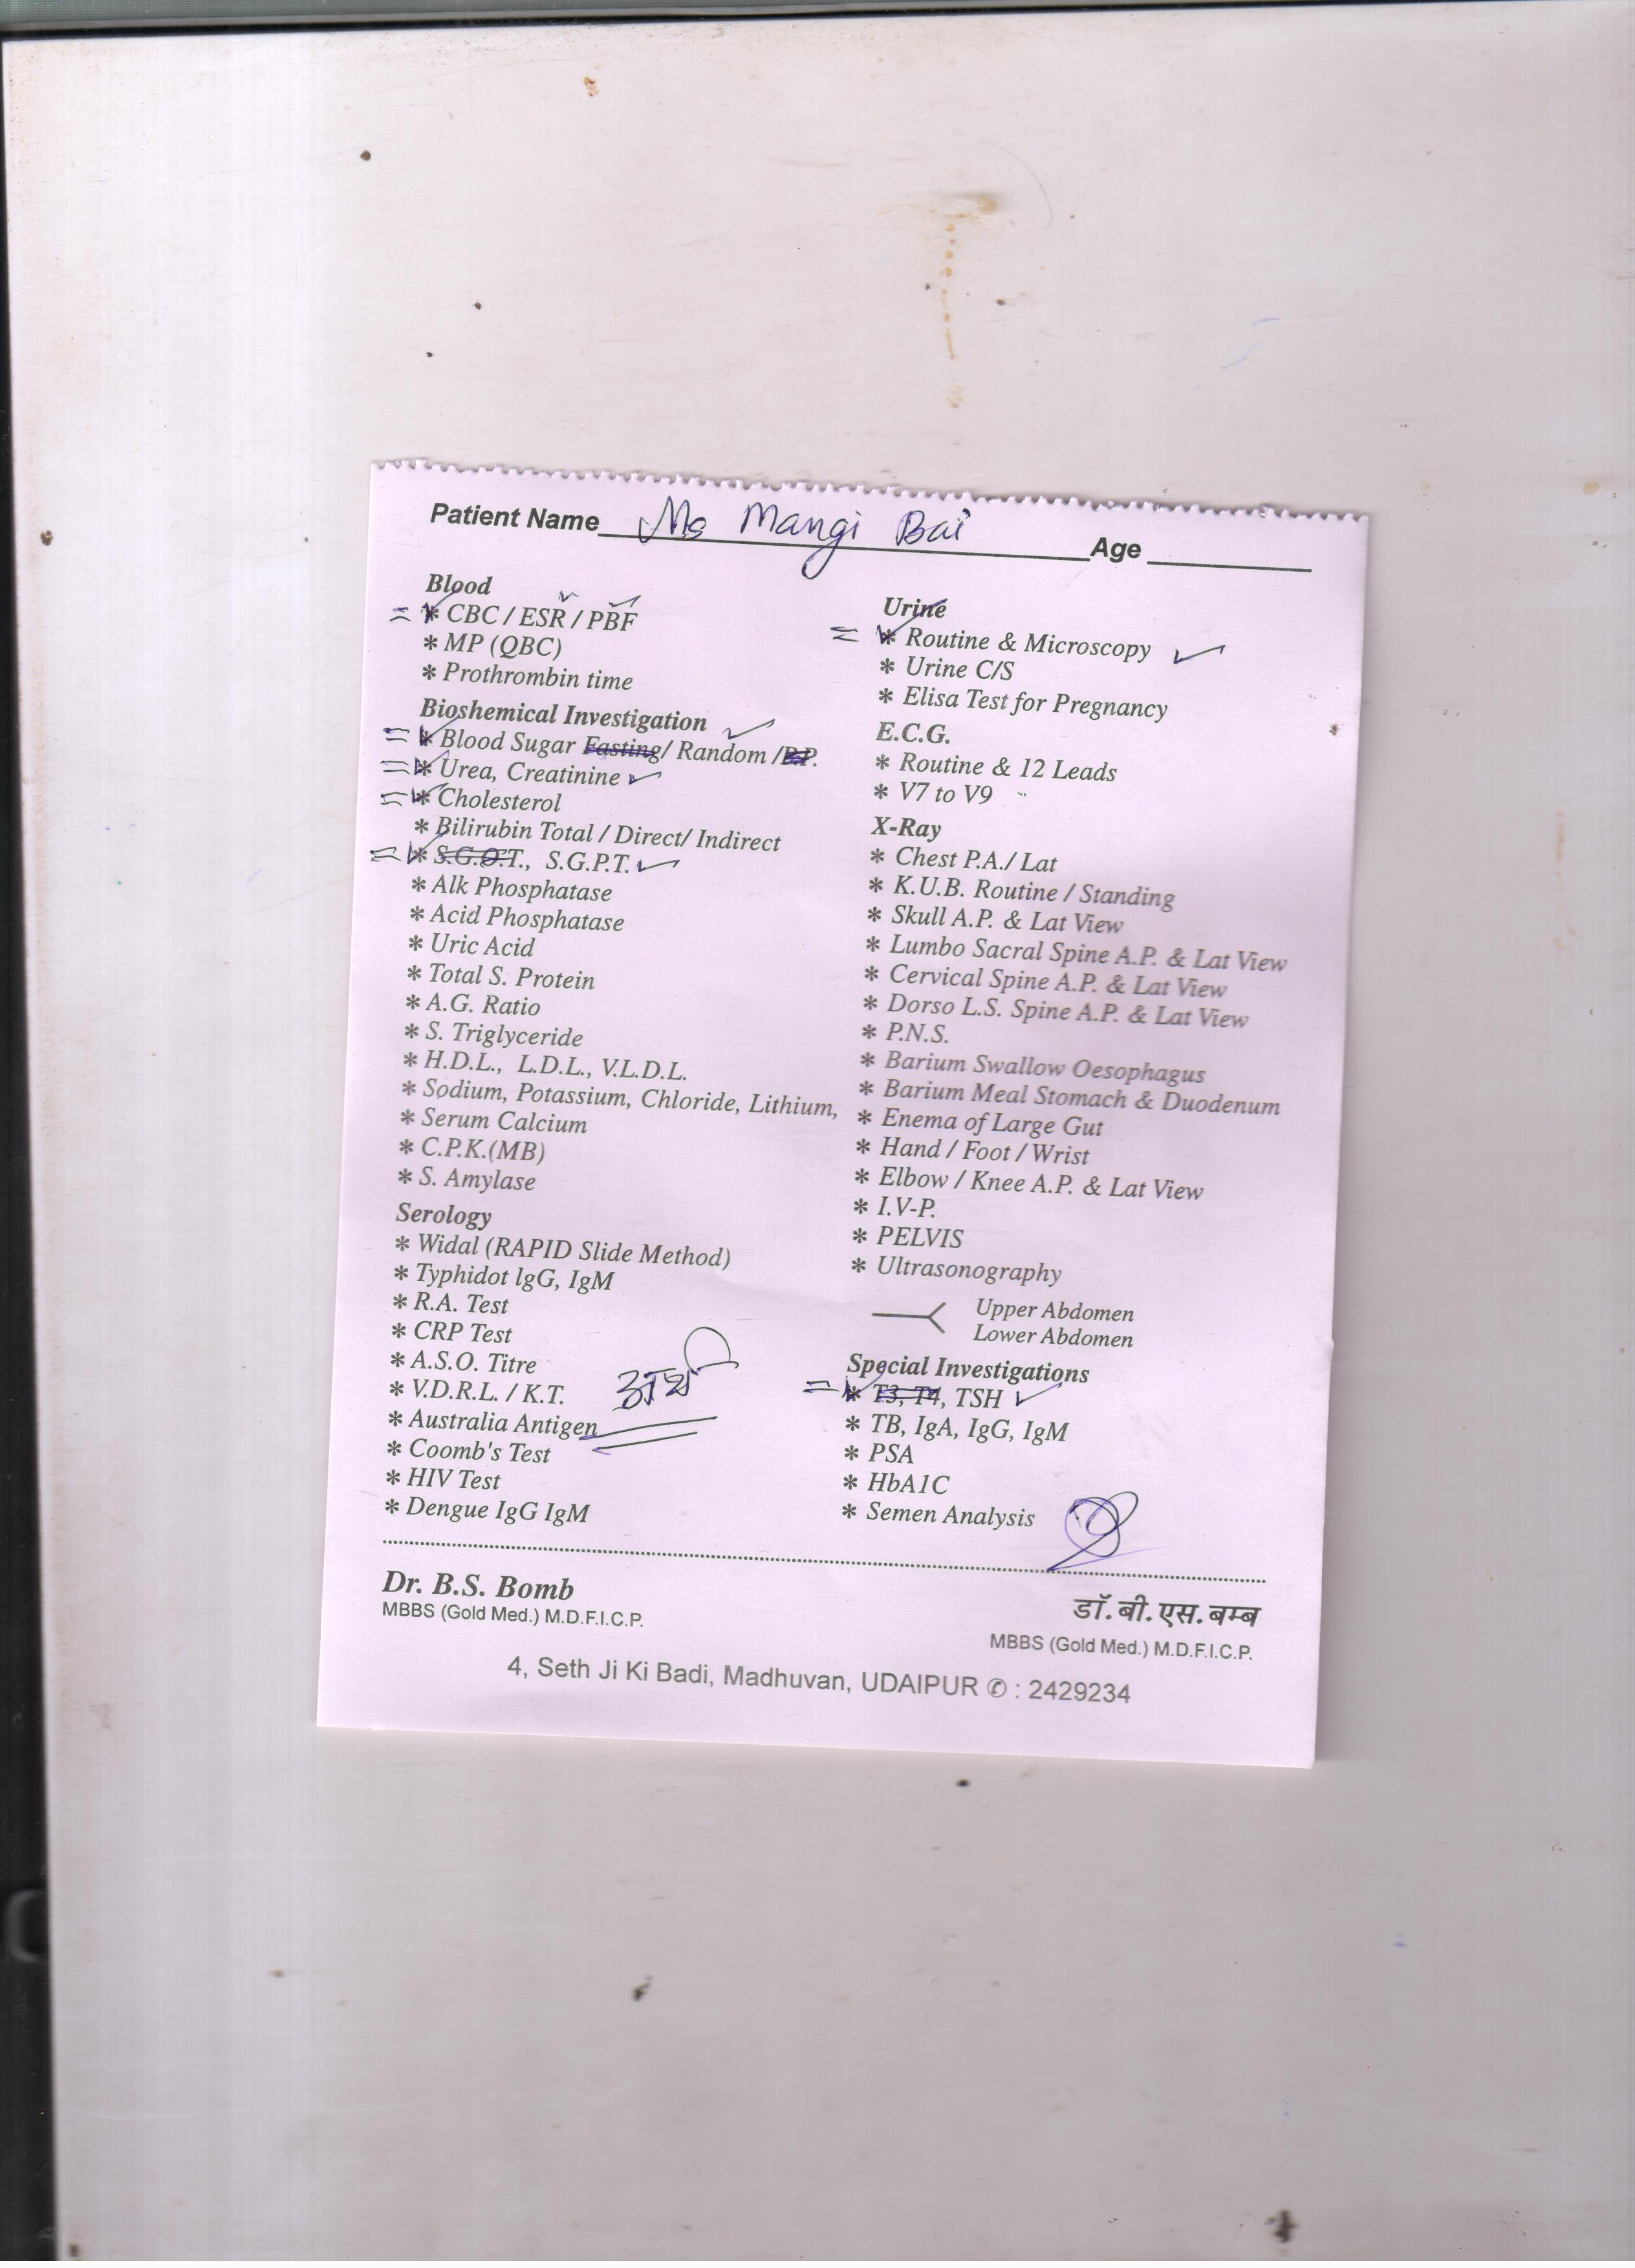 Patient Name Ms Mangi Bai Age
Blood
* CBC / ESR / PBF
* MP (QBC)
* Prothrombin time
Bioshemical Investigation
* Blood Sugar Fasting/ Random /P.P.
* Urea, Creatinine
* Cholesterol
* Bilirubin Total / Direct/ Indirect
* S.G.O.T., S.G.P.T.
* Alk Phosphatase
* Acid Phosphatase
* Uric Acid
* Total S. Protein
* A.G. Ratio
* S. Triglyceride
* H.D.L., L.D.L., V.L.D.L.
* Sodium, Potassium, Chloride, Lithium,
* Serum Calcium
* C.P.K.(MB)
* S. Amylase
Serology
* Widal (RAPID Slide Method)
* Typhidot lgG, IgM
* R.A. Test
* CRP Test
* A.S.O. Titre
* V.D.R.L. / K.T.
* Australia Antigen
* Coomb's Test
* HIV Test
* Dengue IgG IgM
Urine
* Routine & Microscopy
* Urine C/S
* Elisa Test for Pregnancy
E.C.G.
* Routine & 12 Leads
* V7 to V9
X-Ray
* Chest P.A./ Lat
* K.U.B. Routine / Standing
* Skull A.P. & Lat View
* Lumbo Sacral Spine A.P. & Lat View
* Cervical Spine A.P. & Lat View
* Dorso L.S. Spine A.P. & Lat View
* P.N.S.
* Barium Swallow Oesophagus
* Barium Meal Stomach & Duodenum
* Enema of Large Gut
* Hand / Foot / Wrist
* Elbow / Knee A.P. & Lat View
* I.V-P.
* PELVIS
* Ultrasonography
Upper Abdomen
Lower Abdomen
Special Investigations
* T3, T4, TSH
* TB, IgA, IgG, IgM
* PSA
* HbA1C
* Semen Analysis
Dr. B.S. Bomb
MBBS (Gold Med.) M.D.F.I.C.P.
डॉ. बी. एस. बम्ब
MBBS (Gold Med.) M.D.F.I.C.P.
4, Seth Ji Ki Badi, Madhuvan, UDAIPUR ✆ : 2429234